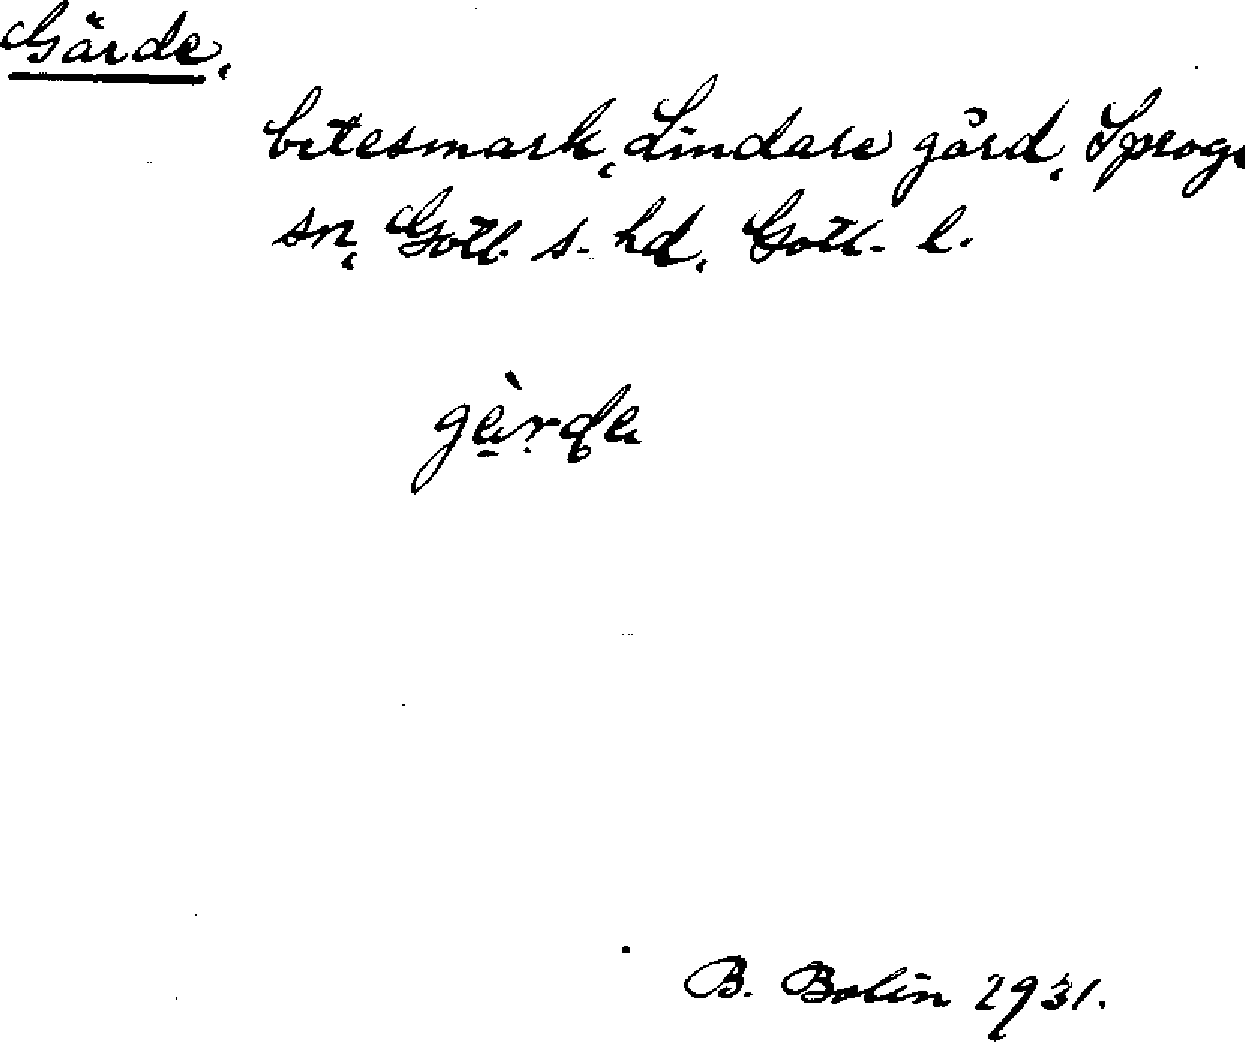 Gärde,
betesmark, Lindare gård, Sproge
sn, Gotl. s. hd, Gotl. l.
gèrde
B. Bolin 1931.